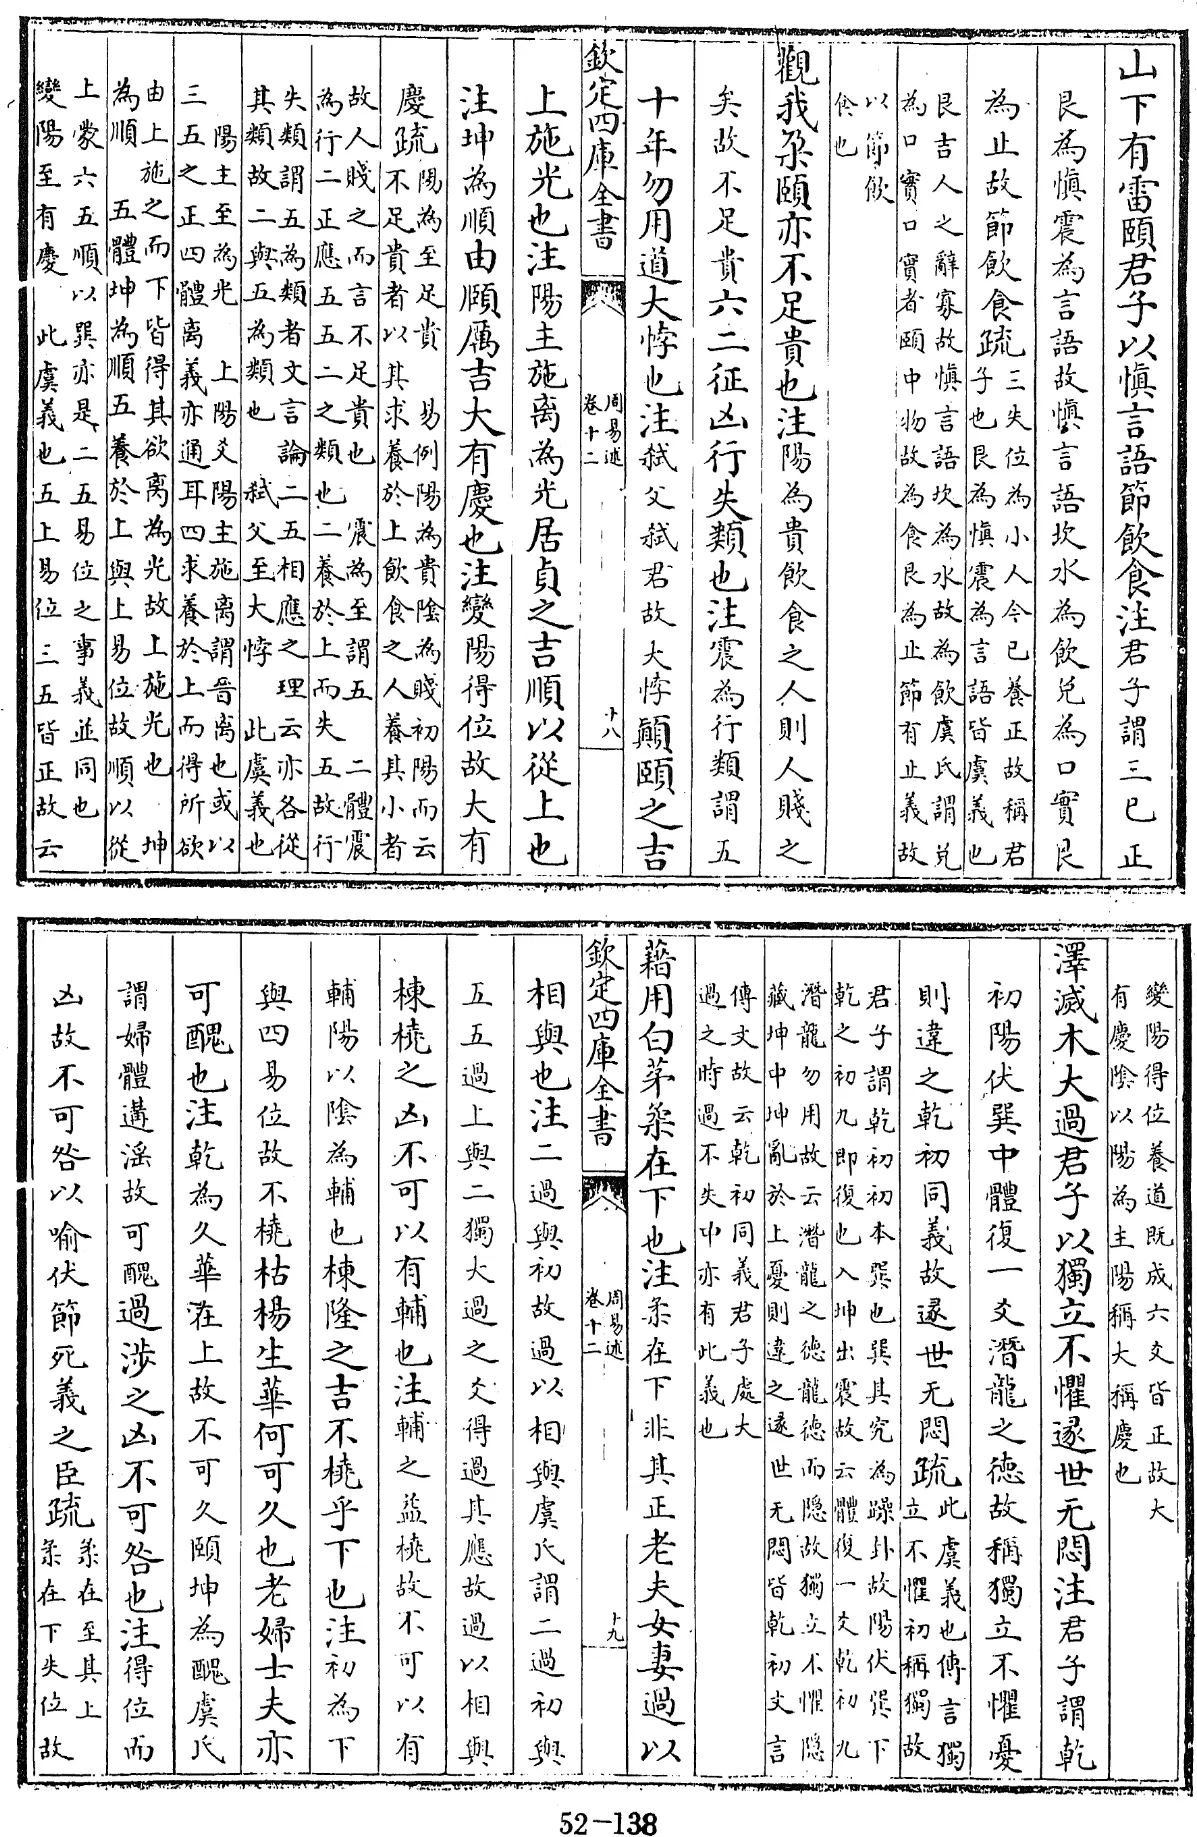 山下有雷頤君子以慎言語節飲食注君子謂三已正
艮為慎震為言語故慎言語坎水為飲兌為口實艮
為止故節飲食疏三失位為小人今已養正故稱君
子也艮為慎震為言語皆虞義也
艮吉人之辭寡故慎言語坎為水故為飲虞氏謂兌
為口實口實者頤中物故為食艮為止節有止義故
以節飲
食也
觀我朶頤亦不足貴也注陽為貴飲食之人則人賤之
矣故不足貴六二征凶行失類也注震為行類謂五
十年勿用道大悖也注弑父弑君故大悖顚頤之吉
欽定四庫全書
周易述
卷十二
十八
上施光也注陽主施离為光居貞之吉順以從上也
注坤為順由頤厲吉大有慶也注變陽得位故大有
慶疏陽為至足貴 易例陽為貴陰為賤初陽而云
不足貴者以其求養於上飲食之人養其小者
故人賤之而言不足貴也 震為至謂五 二體震
為行二正應五五二之類也二養於上而失五故行
失類謂五為類者文言論二五相應之理云亦各從
其類故二與五為類也 弑父至大悖 此虞義也
陽主至為光 上陽爻陽主施离謂晋离也或以
三五之正四體离義亦通耳四求養於上而得所欲
由上施之而下皆得其欲离為光故上施光也 坤
為順 五體坤為順五養於上與上易位故順以從
上蒙六五順以巽亦是二五易位之事義並同也
變陽至有慶 此虞義也五上易位三五皆正故云
變陽得位養道既成六爻皆正故大
有慶陰以陽為主陽稱大稱慶也
澤滅木大過君子以獨立不懼遯世无悶注君子謂乾
初陽伏巽中體復一爻潛龍之德故稱獨立不懼憂
則違之乾初同義故遯世无悶疏此虞義也傳言獨
立不懼初稱獨故
君子謂乾初初本巽也巽其究為躁卦故陽伏巽下
乾之初九即復也入坤出震故云體復一爻乾初九
潛龍勿用故云潛龍之德龍德而隱故獨立不懼隱
藏坤中坤亂於上憂則違之遯世无悶皆乾初文言
傳文故云乾初同義君子處大
過之時過不失中亦有此義也
藉用白茅柔在下也注柔在下非其正老夫女妻過以
欽定四庫全書
周易述
卷十二
十九
相與也注二過與初故過以相與虞氏謂二過初與
五五過上與二獨大過之爻得過其應故過以相與
棟橈之凶不可以有輔也注輔之益橈故不可以有
輔陽以陰為輔也棟隆之吉不橈乎下也注初為下
與四易位故不橈枯楊生華何可久也老婦士夫亦
可醜也注乾為久華在上故不可久頤坤為醜虞氏
謂婦體遘淫故可醜過涉之凶不可咎也注得位而
凶故不可咎以喻伏節死義之臣疏柔在至其上
柔在下失位故
52-138